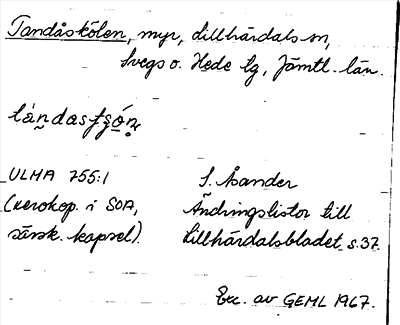 Tandåskölen, myr, Lillhärdals sn,
Svegs o. Hede tg, Jämtl. län.
ULMA 755:1 S. Åsander
(xerokop. i SOA, Ändringslistor till
särsk. kapsel). Lillhärdalsbladet s. 37.
Exc. av GEML 1967.